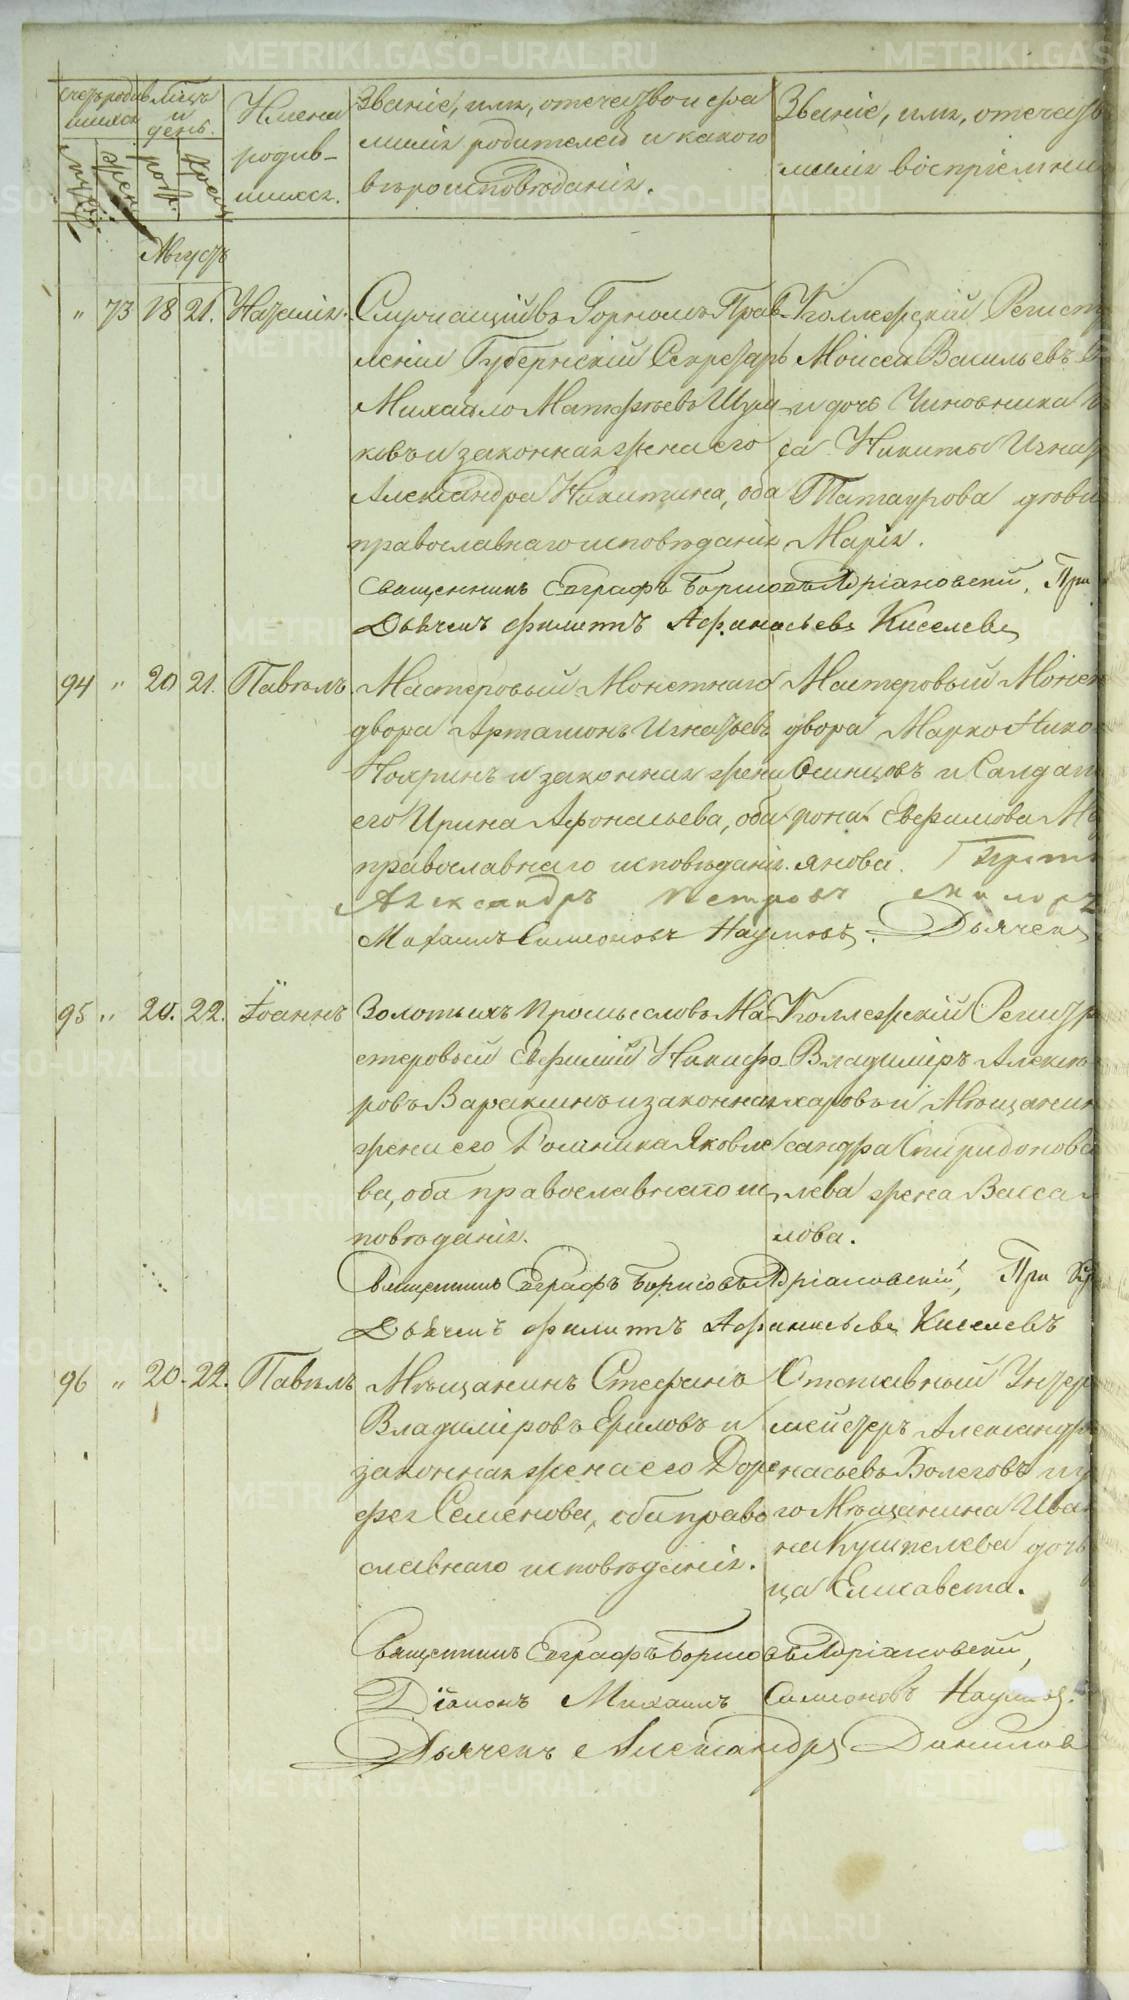 счетъ родив
шихся
мѣсяцъ
и
день.
Имена
родив-
шихся.
Званіе, имя, отечество и фа
милія родителей и какого
вѣроисповѣданія.
Званіе, имя, отечеств
милія воспріемни
Августъ
" 73 18 21. Наталія.
Служащій въ Горномъ Прав-
ленія Губернскій Секретарь
Михайло Матфѣевъ
ковъ и законная жена его
Александра Никитина, оба
православнаго исповѣданія
Коллежскій Регист
Моисей Васильевъ
и дочь Чиновника
са Никиты Игнат
Татаурова дѣви
Марія.
Священникъ Евграфъ Борисовъ Адріановскій, При
Дьячекъ Филиппъ Афанасьевъ Киселевъ
94 " 20 21. Павелъ.
Мастеровый Монетнаго
двора Артамонъ Игнатьевъ
и законная жена
его Ирина Афонасьева, оба
православнаго исповѣданія.
Мастеровый Монет
двора Марко Нико
Осинцовъ и Салдат
жена Евфимова
янова.
Александръ Петровъ
Михаилъ Симеоновъ Наумовъ. Дьячекъ
95 " 20. 22. Іоаннъ
Золотыхъ промысловъ Ма-
стеровый Ефимій Никифо-
ровъ Варакинъ и законная
жена его Домника Яковле
ва, оба православнаго ис-
повѣданія.
Коллежскій Регистр
Владиміръ Алекс
харовъ и Мѣщанин
сандра Спиридонова
лева жена Васса
лова.
Священникъ Евграфъ Борисовъ Адріановскій, При
Дьячекъ Филиппъ Афанасьевъ Киселевъ
96 " 20. 22. Павелъ
Мѣщанинъ Стефанъ
Владиміровъ Ериловъ и
законная жена его Доро
фея Семенова, оба право
славнаго исповѣданія.
Отставный Унтер
мейстеръ Александр
насьевъ Волеговъ и
го Мѣщанина Ива
на Кушкелева дочь
ца Елисавета.
Священникъ Евграфъ Борисовъ Адріановскій,
Діаконъ Михаилъ Симеоновъ Наумовъ.
Дьячекъ Александръ Даниловъ
METRIKI.GASO-URAL.RU